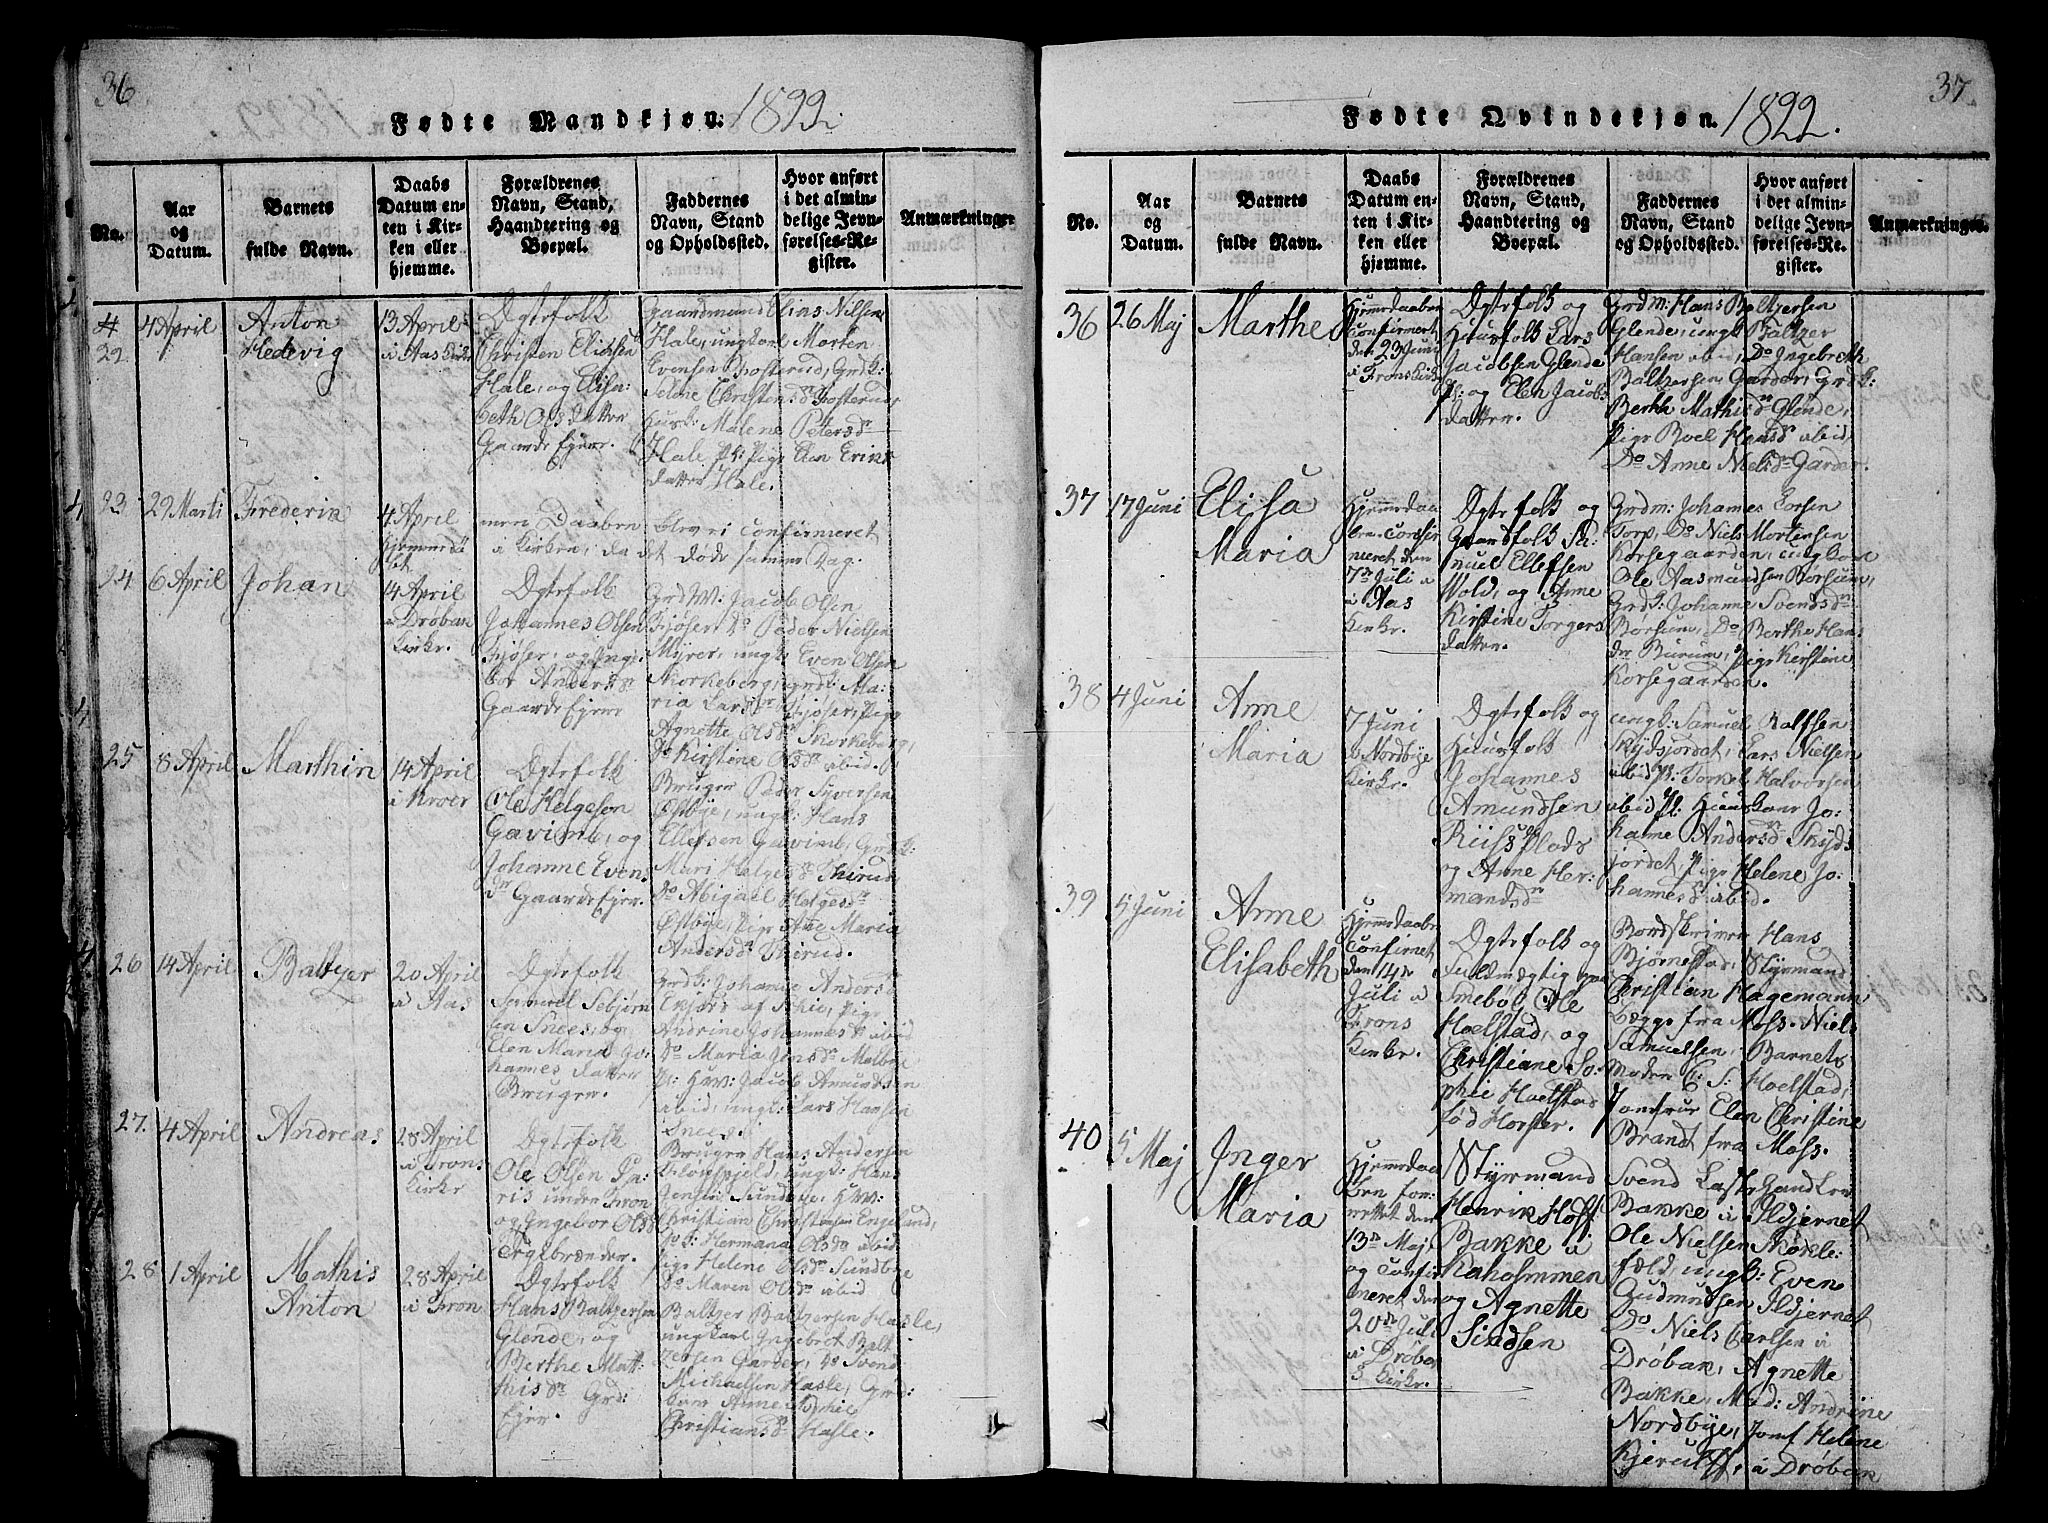 36
Fødte Mandkjøn. 1822.
No.
Aar
og
Datum.
Barnets
fulde Navn.
Daabs
Datum en-
ten i Kir-
ken eller
hjemme.
Forældrenes
Navn, Stand,
Haandtering og
Boepæl.
Faddernes
Navn, Stand
og Opholdssted.
Hvor anført
i det almin-
delige Jevn-
førelses-Re-
gister.
Anmærkninger.
22
4 April
Anton
Hedevig
13 April
i Aas Kirke
Ægtefolk
Christen Elichsen
Hale, og Elisa-
beth Olsdatter
Gaarde Ejere.
Gaardmand Elins Nilsen
Hale, ungkarl Morten
Evensen Frosterud, Grdk:
Huusk: Malene Petersdr
Hale Pl: Pige Elen Eriks
datter Hale.
23
29 Marti
Frederik
4 April
Hjemmedø
bt
men Daaben blev ei confirmeret
i Kirken, da det døde samme Dag.
24
6 April
Johan
14 April
i Drøbak
Kirke.
Ægtefolk
Johannes Olsen
Fjøser, og Ing-
bor Andersdr
Gaarde Ejere
GrdM. Jacob Olsen
Fjøser, Do Peder Nielsen
Myrer, ungk: Even Olsen
Skorkeberg, grdk: Ma-
ria Larsdr Fjøser, Pige
Agnette Olsdr Skorkeberg,
Do Kirstine Olsdr ibid.
25
8 April
Marthin
14 April
i Kroer
Ægtefolk
Ole Helgeson
Gavimb, og
Johanne Evens
dr Gaarde Ejere.
Bruger Peder Syversen
Østbye, ungk: Hans
Ellefsen Gavimb, Grdk:
Mari Helgesdr Thirud
Do Abigael Helgesdr
Østbye, Pige Anne Maria
Andersdr Thirud.
26
14 April
Baltzer
20 April
i Aas
Ægtefolk
Samuel Sebjørn
sen Snees, og
Elen Maria Jo-
hannes datter
Bruger.
Grdk: Johanne Anders
Ekjørs af Skie, Pige
Andrine Johannesdr ibid
Do Maria Jensdr
Pl: HM: Jacob Amundsen
ibid, ungk: Lars Hansen
Snees.
27.
4 April
Andreas
28 April
i Frons
Kirke
Ægtefolk
Ole Olsen
under Fron
og Ingebor Olsdr
Tyglbrænder.
Bruger Hans Andersen
ungk: Hans
Jensen Sundbye, HM:
Christian Christensen Engelund,
Do K: Hermana Olsdr ibid
Pige Helene Olsdr Sundbye
Do Maren Olsdr ibid
28
1 April
Mathis
Anton
28 April
i Fron
Ægtefolk
Hans Baltzersen
Glende, og
Berthe Mat-
thisdr Grd:
Ejer.
Baltzer Baltzersen Hasle,
ungkarl Ingebret Balt
zersen Garder, Do Svend
Michaelsen Hasle, Grd-
kone Anne Sophie
Christiansdr Hasle.
37
Fødte Qvindekjøn. 1822.
No.
Aar
og
Datum.
Barnets
fulde Navn.
Daabs
Datum en-
ten i Kir-
ken eller
hjemme.
Forældrenes
Navn, Stand,
Haandtering og
Boepæl.
Faddernes
Navn, Stand
og Opholdssted.
Hvor anført
i det almin-
delige Jevn-
førelses-Re-
gister.
Anmærkninger.
36
26 Maj
Marthe
Hjemmedaaben
confirmert
den 23 Juni
i Frons Kirke
Ægtefolk og
Huusfolk Lars
Jacobsen Glende
Pl: og Elen Jacobs
datter.
Grdm: Hans Baltzersen
Glende, ungk: Baltzer
Hansen ibid, Do Ingebreth
Baltzersen Garder, Grdk:
Berthe Mathisdr Glende,
Pige Boel Hansdr ibid,
Do Anne Nielsdr Garder.
37
17 Juni
Elisa
Maria
Hjemmedaa
ben confir
meret den
7de Juli i
Aas
Kirke.
Ægtefolk og
Gaardfolk Sa-
muel Ellefsen
Wold, og Anne
Kirstine Torgers
datter.
Grdm: Johannes Corsen
Torp, Do Niels Mortensen
Korsegaarden, ungkarl
Ole Aasmundsen Børsum,
Grdk: Johanne Svendsdr
Børsum, Do Berthe Hans
dr Burum, Pige Kerstine
Korsegaarden.
38
4 Juni
Anne
Maria
7 Juni
i Nordbye
Kirke.
Ægtefolk og
Huusfolk
Johannes
Amundsen
Riis Plads
og Anne Her-
mandsdr
ungk: Samuel Ralfsen
Skydsjordet, Lars Nielsen
ibid Pl: Torkel Halvorsen
ibid Pl: Huuskone Jo-
hanne Andersdr Skyds
jordet, Pige Helene Jo-
hannesdr ibid.
39
5 Juni
Anne
Elisabeth
Hjemmedaaben
confirmet
den 14de
Juli i
Frons
Kirke.
Ægtefolk og
Fuldmægtig paa
Smebøl, Ole
Hoelstad, og
Christiane So-
phie Hoelstad
fød Horster.
Bordskriver Hans
Bjørnestad, Styrmand
Christian Hagemann
begge fra Moss. Niels
Samuelsen, Barnets
Moder C: S: Hoelstad,
Jomfrue Elen Christine
Brandt fra Moss.
40
5 Maj
Inger
Maria
Hjemmedaa
ben for-
rettet den
13de Maj,
og confir
meret den
20de Juli
i Drøbak
Kirke.
Styrmand
Henrik Hoff
Bakke i
Kaholmmen
og Agnette
Sindsen
Svend
Bakke i Ildjernet
Ole Nielsen Skokle-
fæld, ungk: Even
Gudmudsen Ildjernet
Do Niels Carlsen i
Drøbak, Agnette
Bakke, Mad: Andrine
Nordbye, Jomf Helene
Kjerulff, i Drøbak